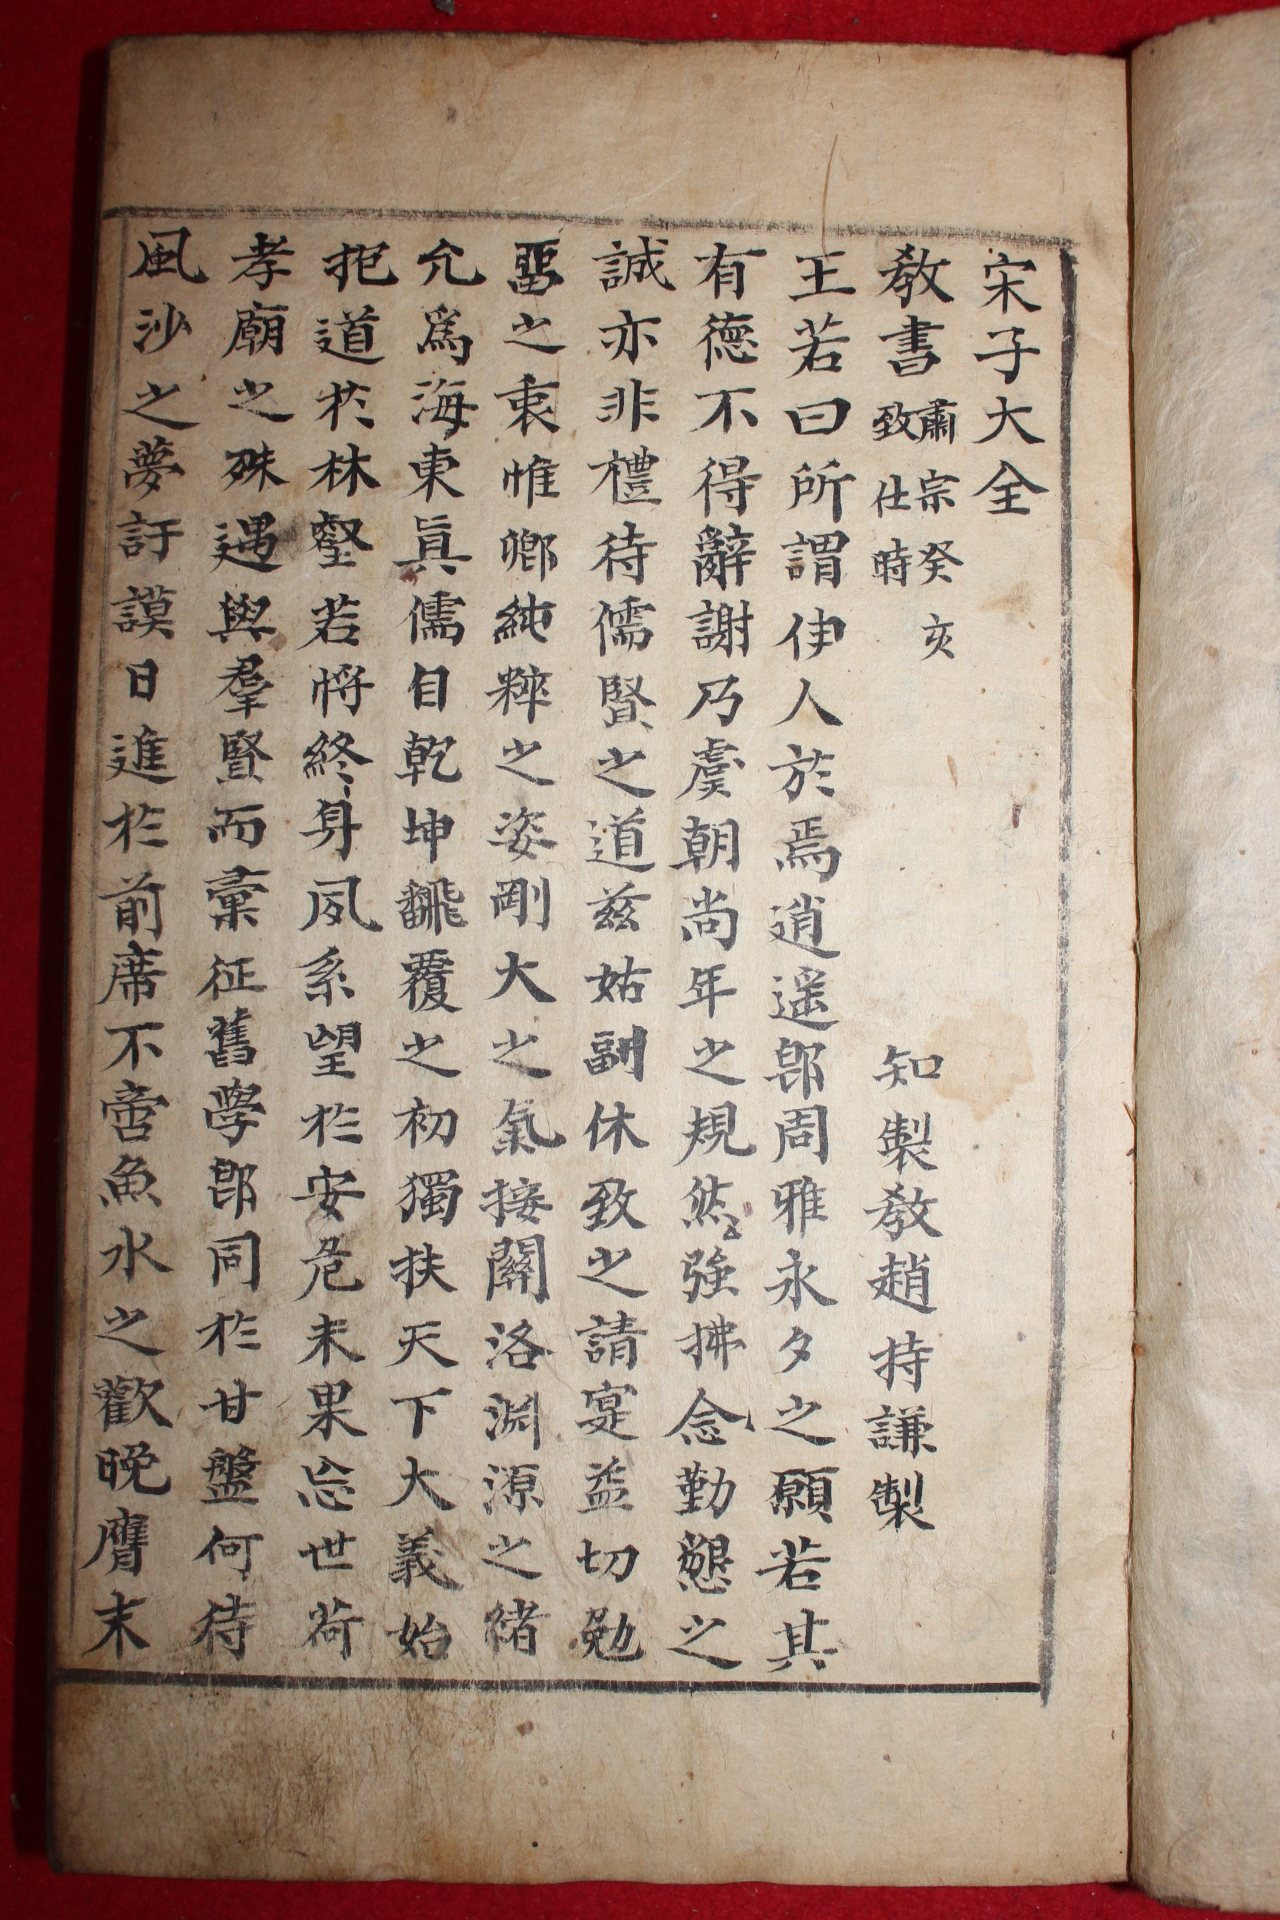 宋子大全
教書肅宗癸亥致仕時 知製敎趙持謙製
王若曰所謂伊人於焉逍遥卽周雅永夕之願若其
有德不得辭謝乃虞朝尚年之規然強拂念勤懇之
誠亦非禮待儒賢之道茲姑副休致之請寔益切勉
留之衷惟卿純粹之姿剛大之氣接關洛淵源之緖
允爲海東眞儒自乾坤飜覆之初獨扶天下大義始
抱道於林壑若將終身夙系望於安危未果忘世荷
孝廟之殊遇與羣賢而彙征舊學卽同於甘盤何待
風沙之夢訏謨日進於前席不啻魚水之歡晩膺末